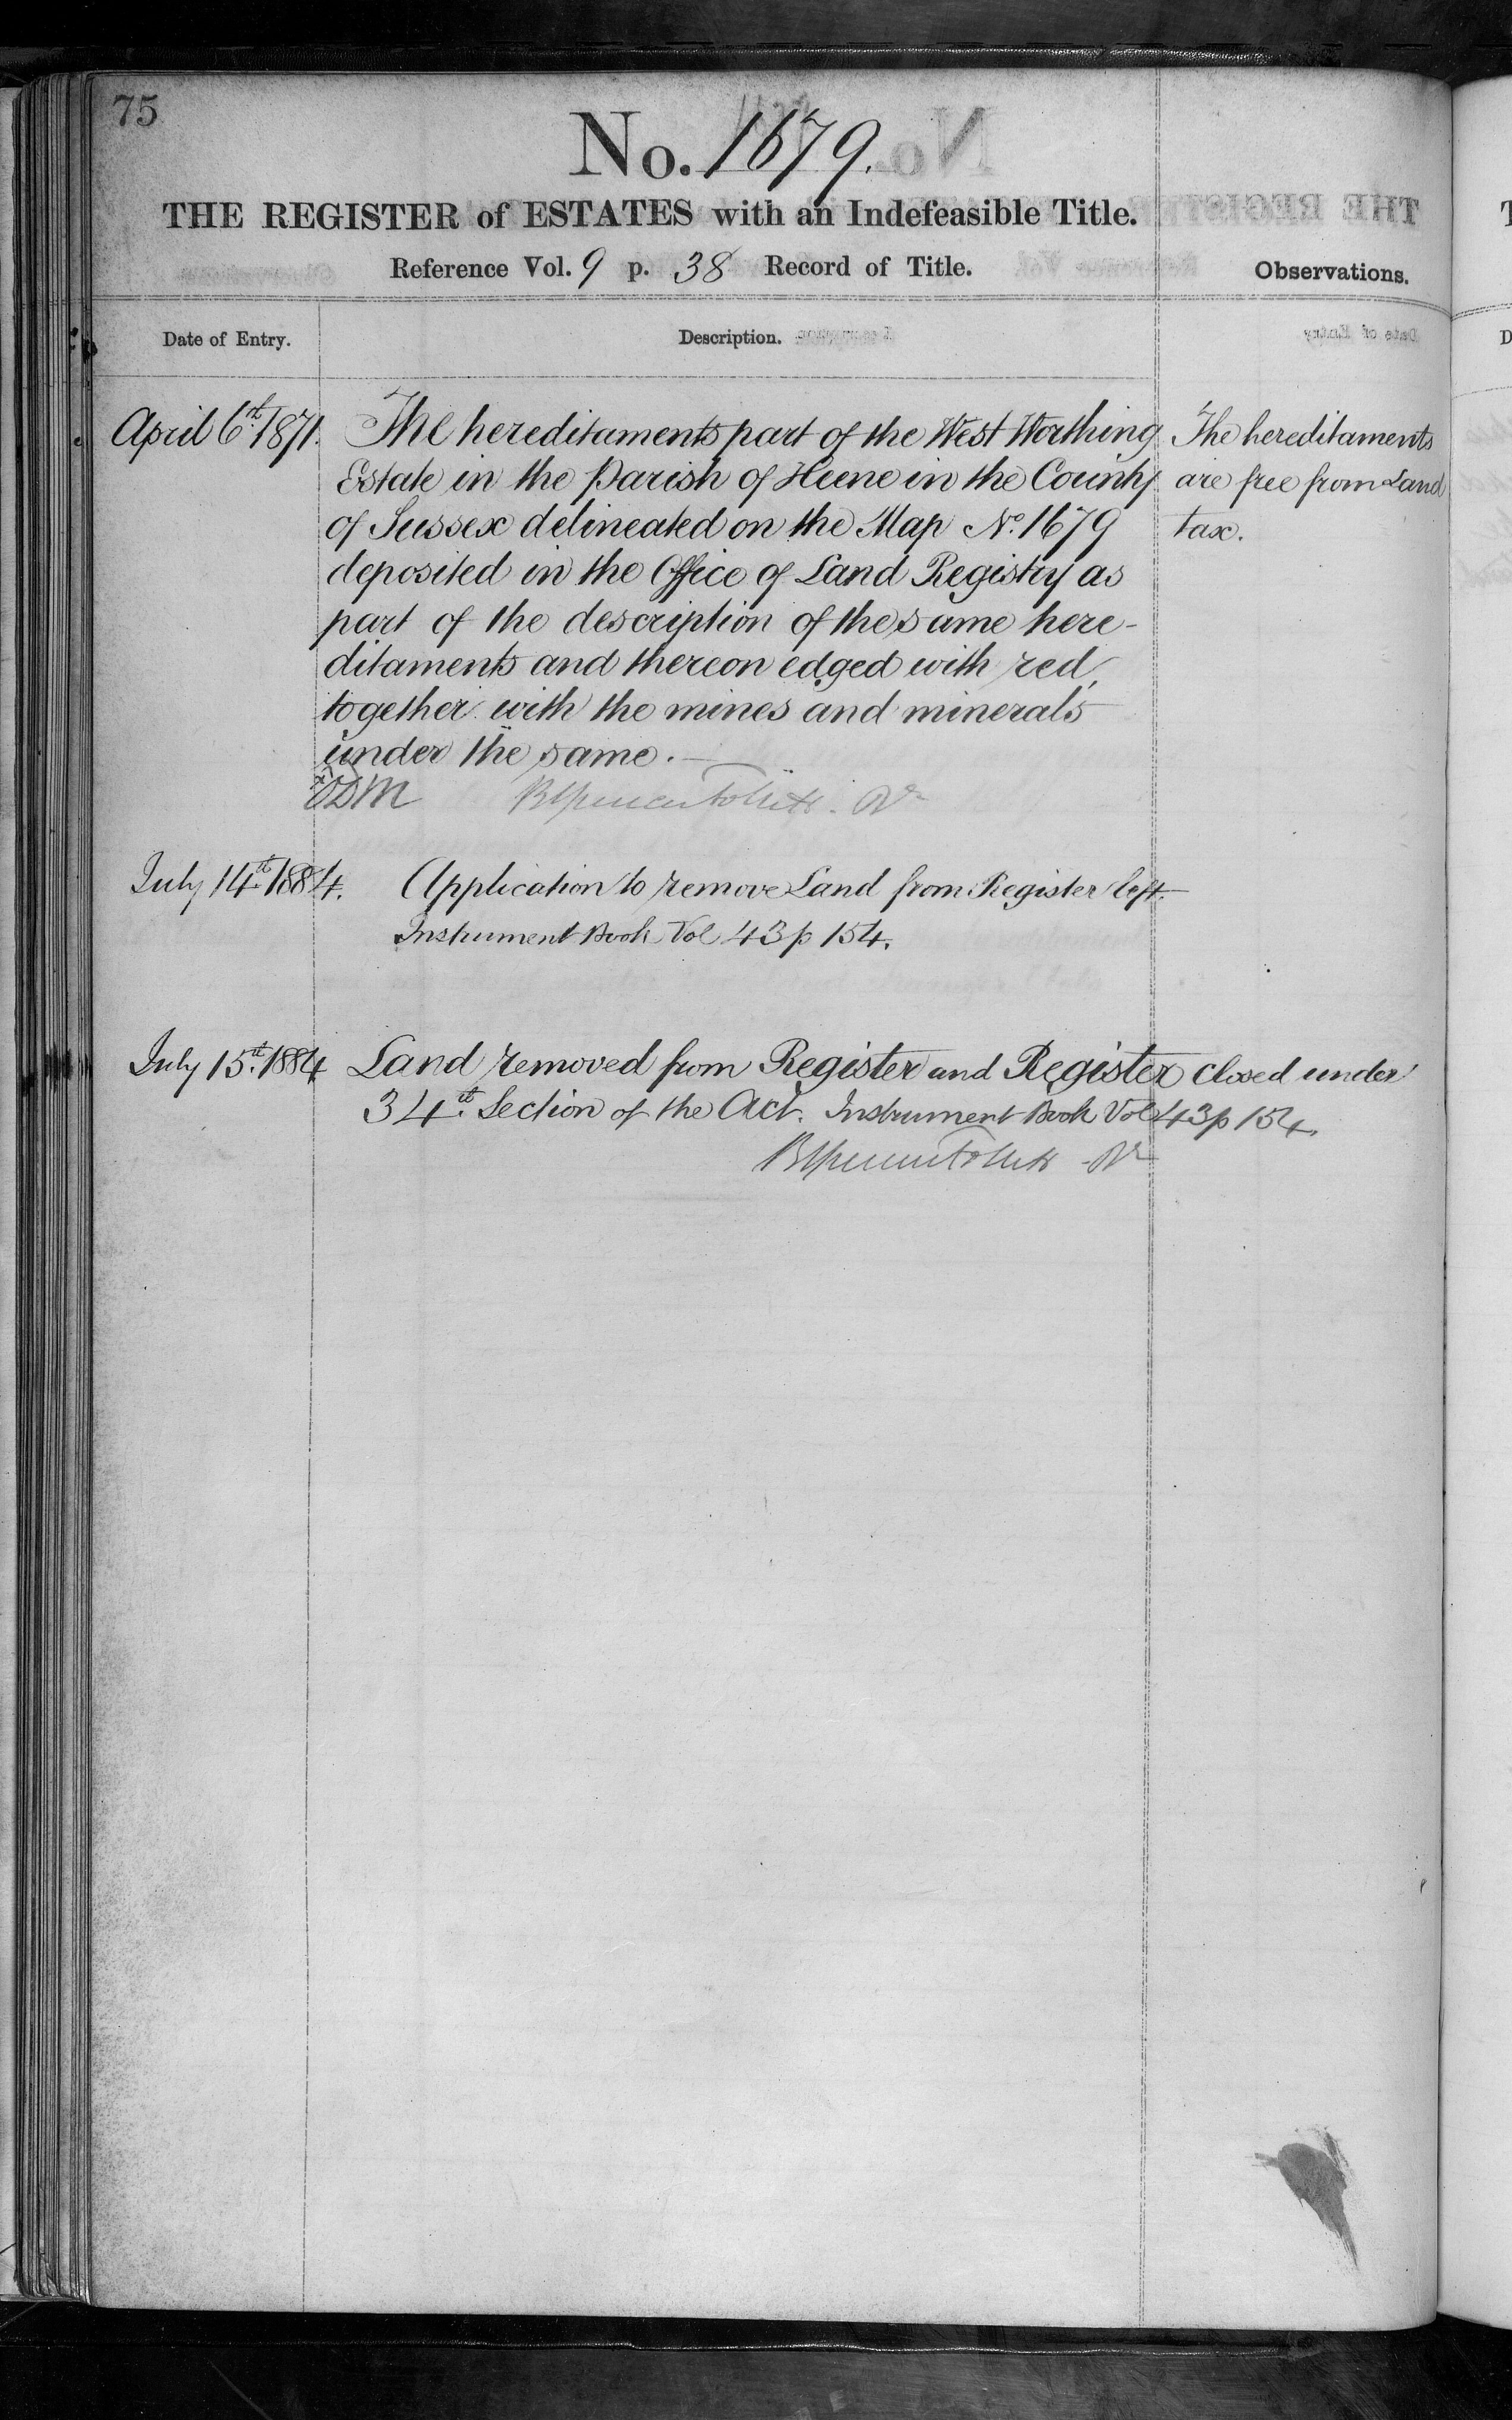 75
No. 1679.
THE REGISTER of ESTATES with an Indefeasible Title.
Reference Vol. 9 p. 38 Record of Title.
Observations.
Date of Entry.
Description.
April 6th 1871. The hereditaments part of the West Worthing
Estate in the Parish of Heene in the County
of Sussex delineated on the Map No. 1679
deposited in the Office of Land Registry as
part of the description of the same here-
ditaments and thereon edged with red,
together with the mines and minerals
under the same.
The hereditaments
are free from Land
tax.
July 14th 1884. Application to remove Land from Register left.
Instrument Book Vol 43 p 154.
July 15th 1884 Land removed from Register and Register closed under
34th Section of the Act. Instrument Book Vol 43 p 154.